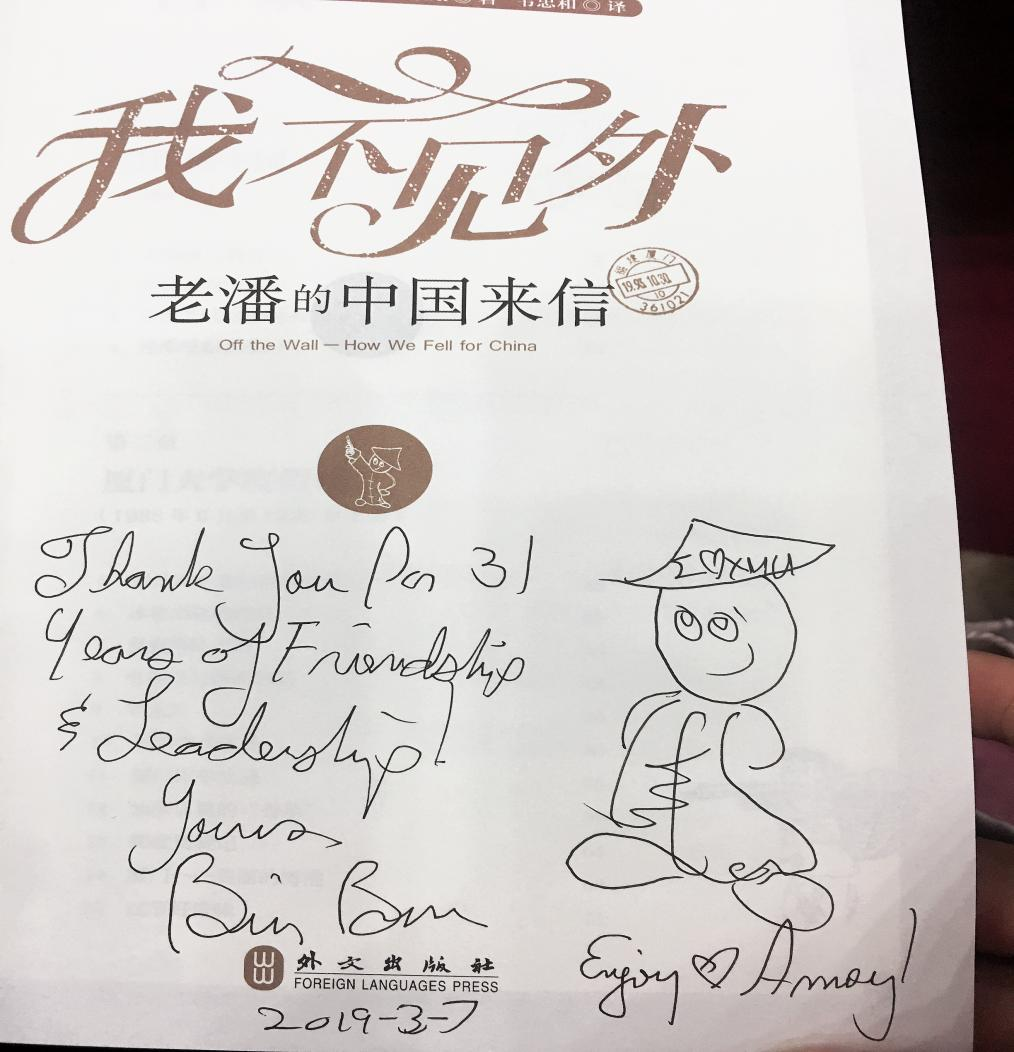 著 韦忠和 ◎ 译
我不见外
老潘的中国来信
福建厦门
1998.10.30.
10
36102
Off the Wall — How We Fell for China
Thank You For 31
Years of Friendship
& Leadership!
Yours,
Bill Brown
I ♡ XMU
Enjoy ♡ Amoy!
外文出版社
FOREIGN LANGUAGES PRESS
2019-3-7